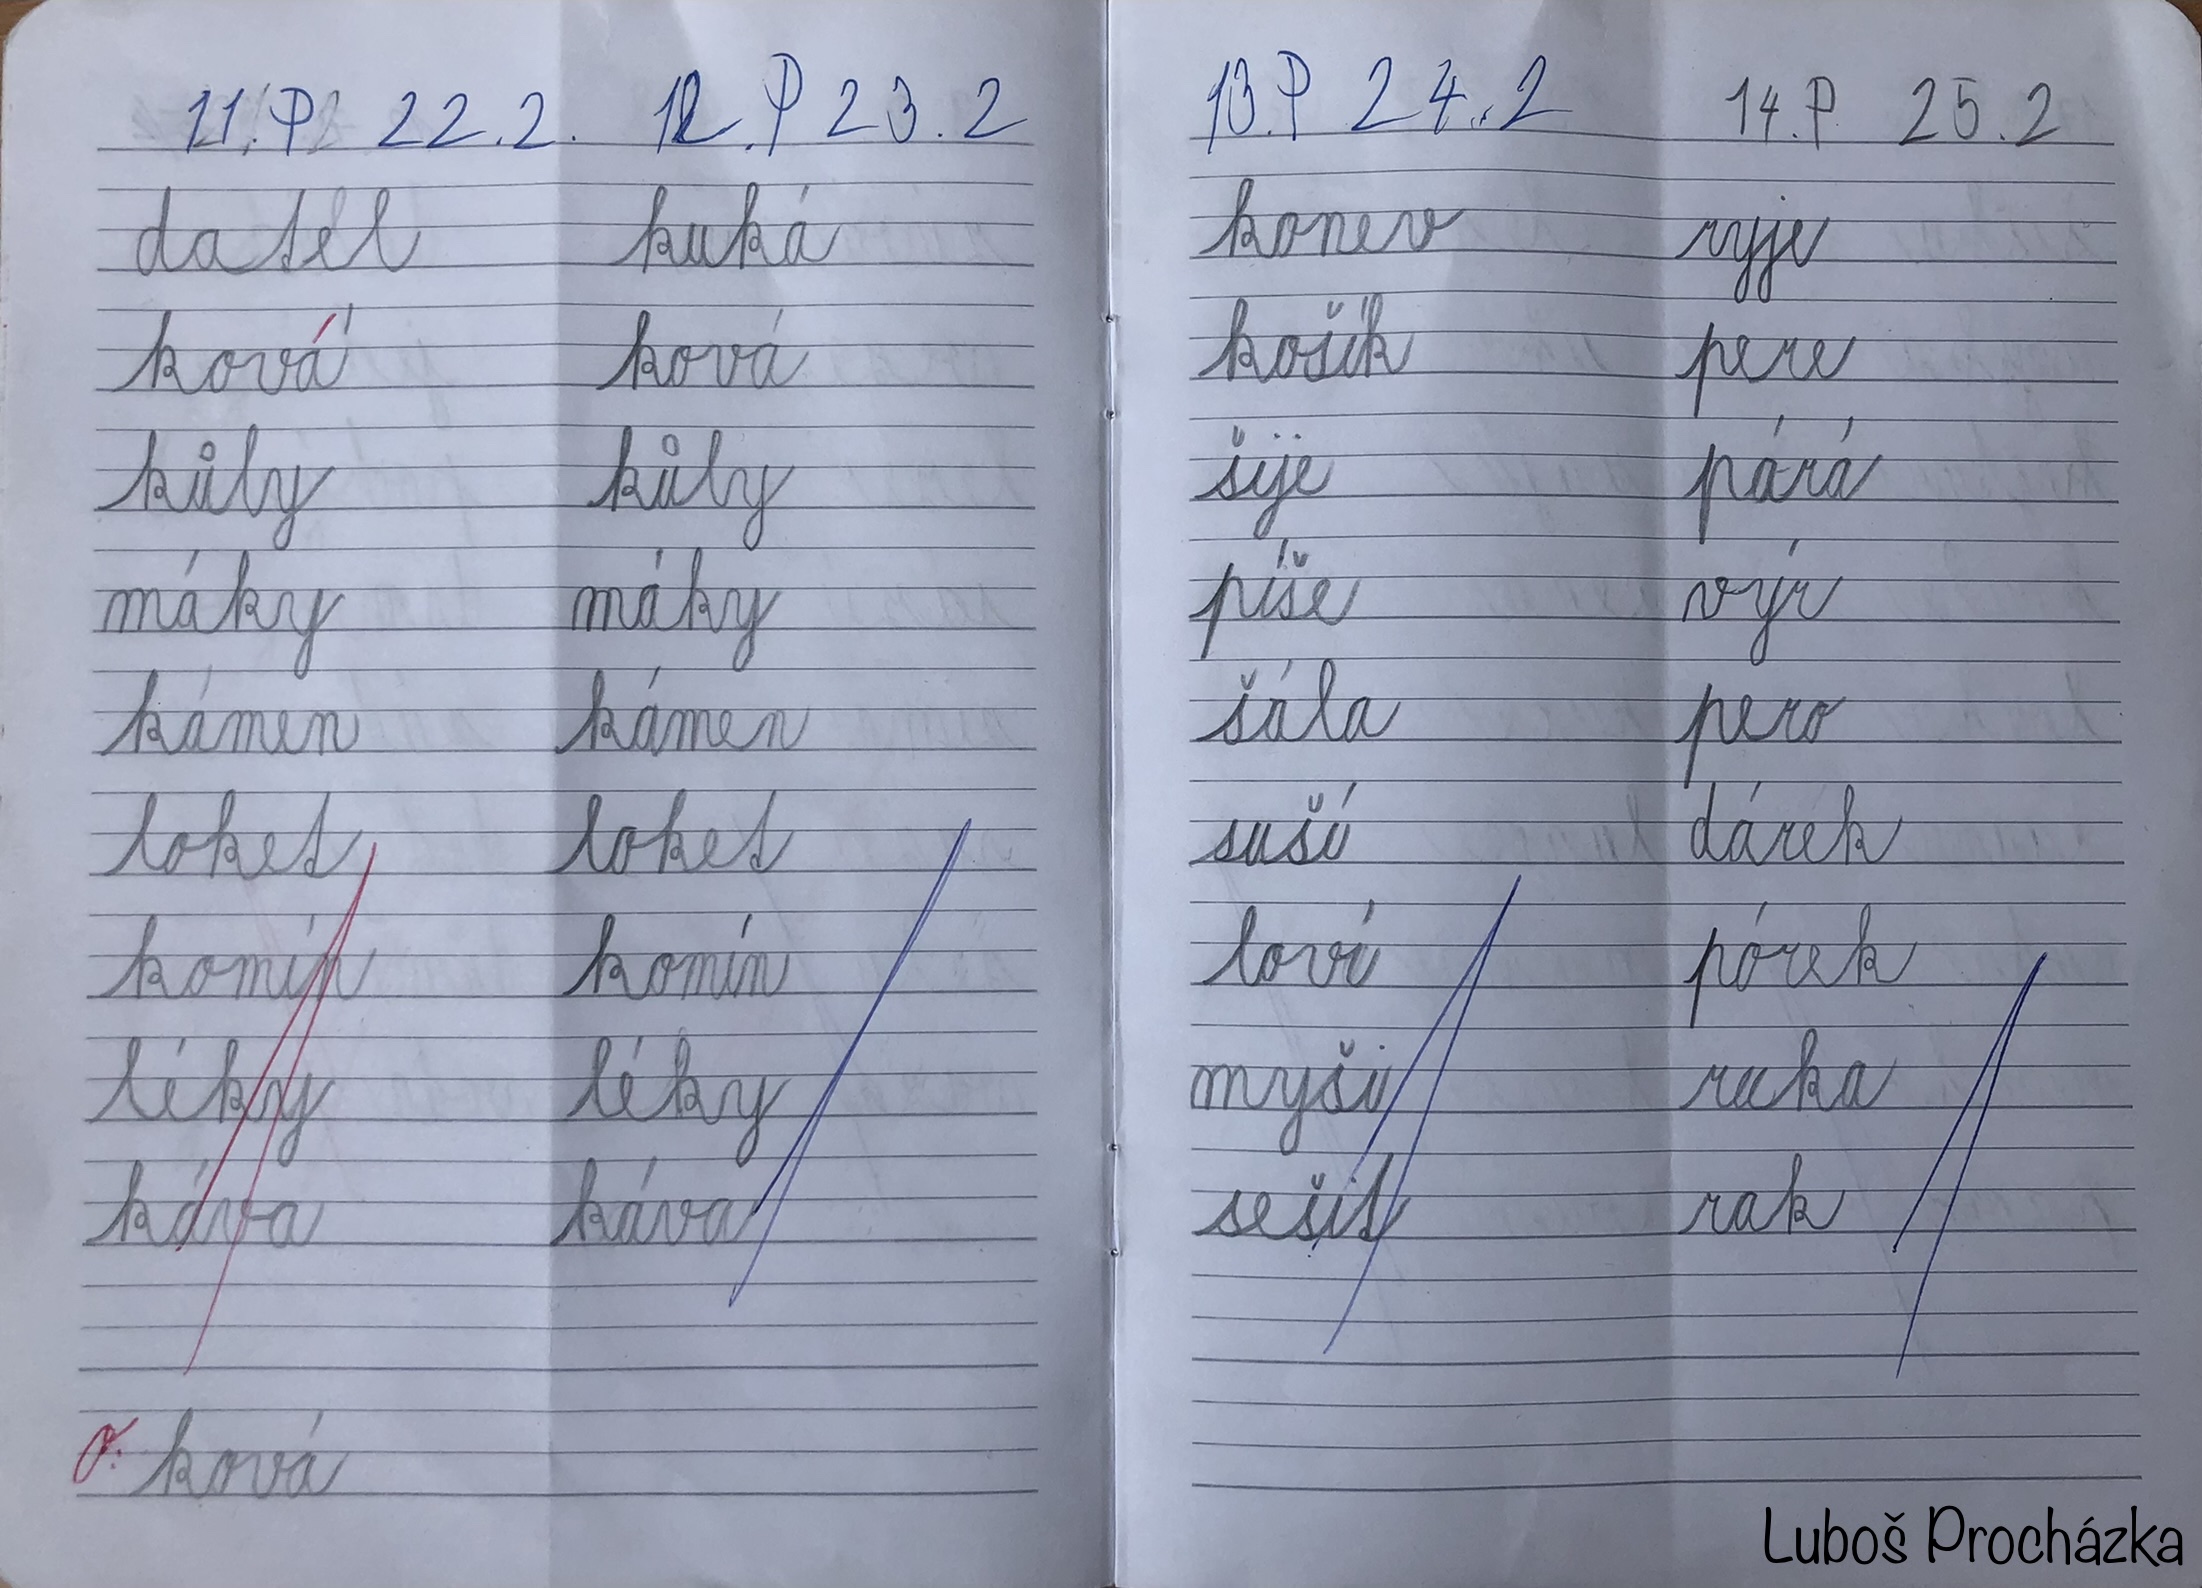 11. P 22.2.
datel
ková
kůly
máky
kámen
loket
komín
léky
káva
O: ková
12. P 23.2
kuká
ková
kůly
máky
kámen
loket
komín
léky
káva
13. P 24.2
konev
košík
šije
píše
šála
suší
loví
myši
sešit
14. P 25.2
ryje
pere
párá
výr
pero
dárek
pórek
ruka
rak
Luboš Procházka